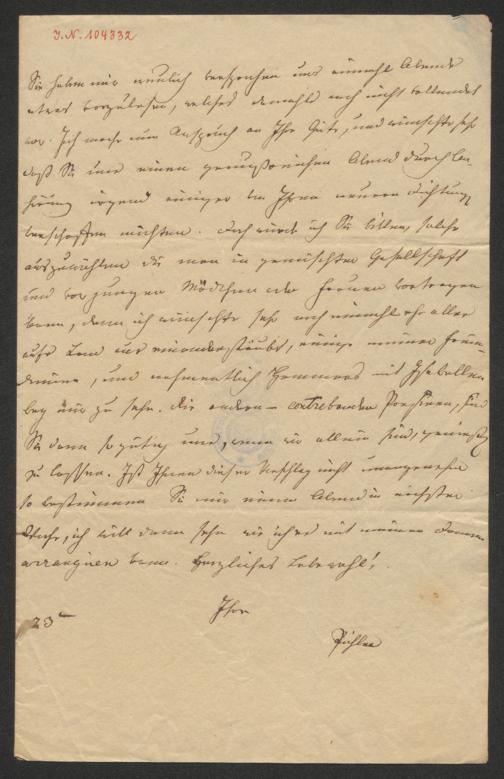 I.N. 104332
Sie haben mir neulich versprochen uns einmahl Abends
etwas vorzulesen, welches damahls noch nicht vollendet
war. Ich mache nun Anspruch an Ihre Güte, und wünschte sehr
daß Sie uns einen genußreichen Abend durch
irgend einiger von Ihren neuern Dichtungen
verschaffen möchten. Doch würde ich Sie bitten, solche
auszuwählen die man in gemischter Gesellschaft
und vor jungen Mädchen oder Frauen vortragen
kann, denn ich wünschte sehr noch einmahl eh alles
aufs Land auseinanderstäubt, einige meiner
, und nahmentlich Hammers mit
bey mir zu sehn. Die andern contrebanden, sind
Sie dann so gütig uns, wenn wir allein sind,
zu lassen. Ist Ihnen dieser Vorschlag nicht unangenehm
so bestimmen Sie mir einen Abend in nächster
Woche, ich will dann sehn wie ich es mit meinen Damen
arrangiren kann. Herzliches Lebewohl!
Ihre
23
Pichler